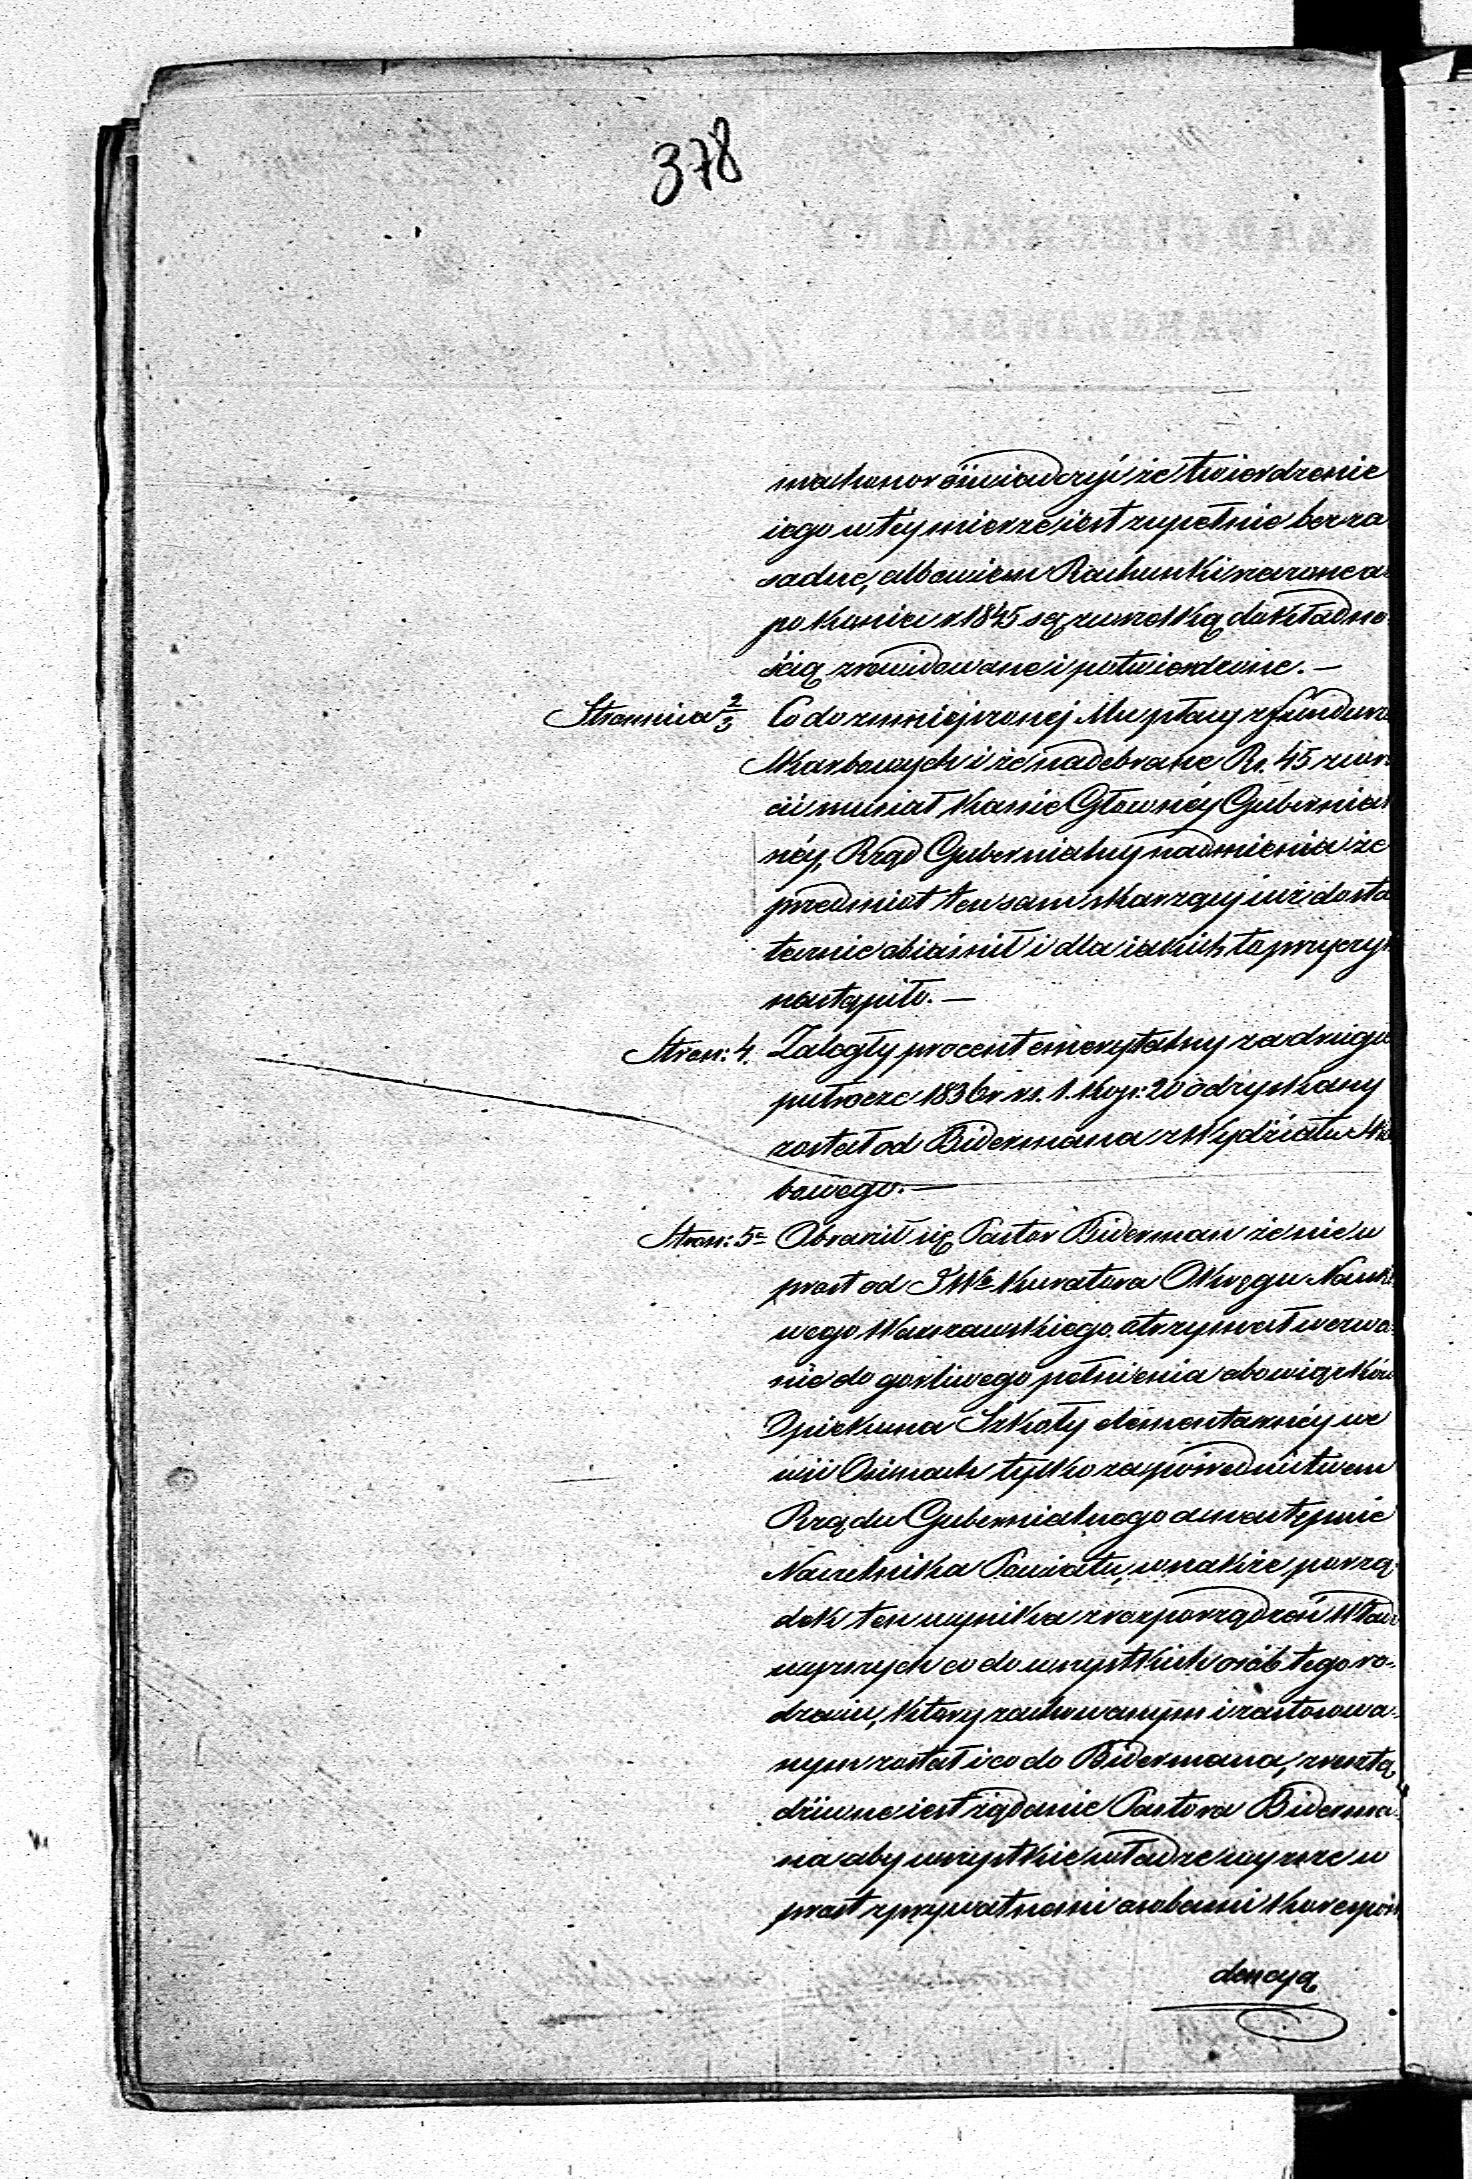 378
ma honor oświadczyć że twierdzenie
iego w téy mierze iest zupełnie bezza
sadne, albowiem Rachunki
po koniec r 1845 są z wszelką dokładno
ścią zrewidowane i potwierdzone. —
Stronnica 2/3 Co do zmniejszonej Mu płacy z fundusz
Skarbowych i że nadebrane Rs. 45 zwró
cić musiał Kassie Głównéy Gubernial
néy, Rząd Gubernialny nadmienia że
przedmiot ten sam skarżący iuż dosta
tecznie obiaśnił i dla iakich to przyczyn
nastąpiło. —
Stron: 4. Zaległy procent emerytalny za drugie
półrocze 1836 r. rs. 1. kop: 20 odzyskany
został od Bidermana z Wydziału Skar
bowego. —
Stron: 5 Obraził się Pastor Biderman że nie w
prost od JW Kuratora Okręgu Nauko
wego Warszawskiego otrzymał wezwa-
nie do gorliwego pełnienia obowiązków
Opiekuna Szkoły elementarnéy we
wii tylko za pośrednictwem
Rządu Gubernialnego a następnie
Naczelnika Powiatu, wszakże porzą-
dek ten wynika z rozporządzeń Władz
wyższych co do wszystkich osób tego ro-
dzaiu, który zachowanym i zastosowa-
nym został i co do Bidermana, zresztą
dziwne iest żądanie Pastora Biderma-
na aby wszystkie władze wyższe w
prost z prywatnemi osobami korespon
dencyą